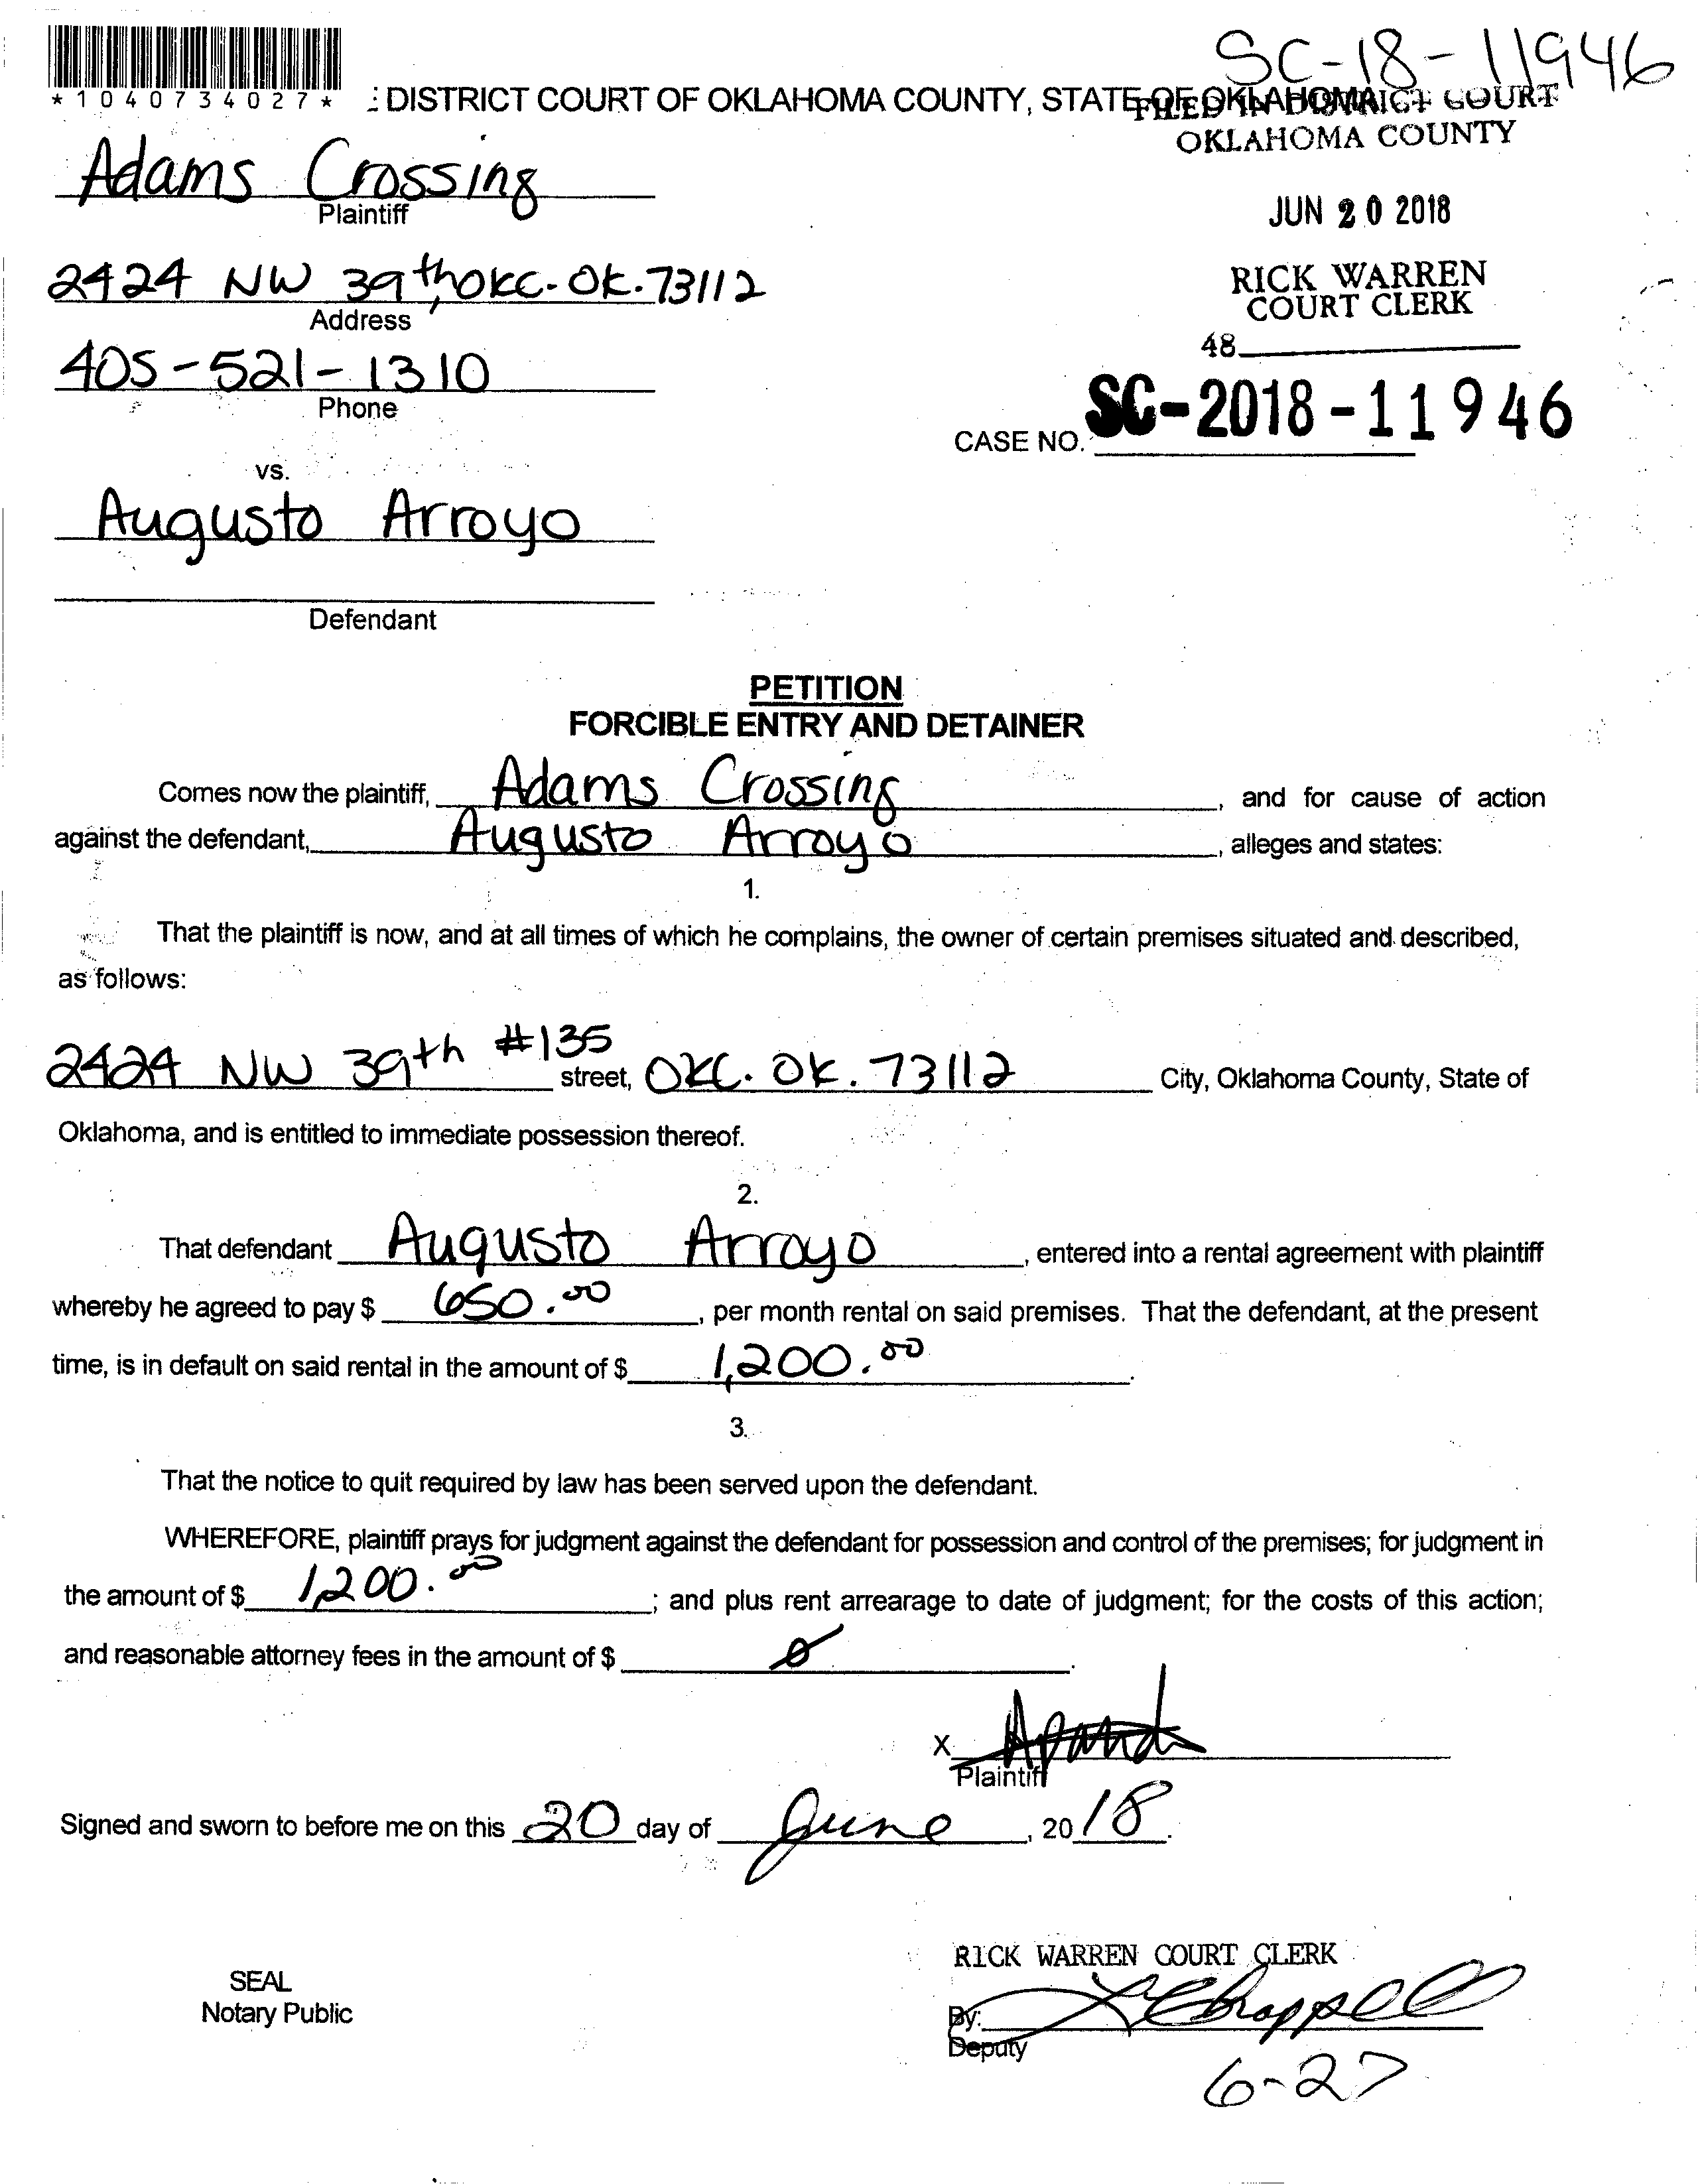 SC-18-11946
*1040734027*
DISTRICT COURT OF OKLAHOMA COUNTY, STATE OF OKLAHOMA
FILED IN DISTRICT COURT
OKLAHOMA COUNTY
Adams Crossing
Plaintiff
JUN 20 2018
2424 NW 39th, OKC. OK. 73112
Address
RICK WARREN
COURT CLERK
48
405-521-1310
Phone
CASE NO. SC-2018-11946
vs.
Augusto Arroyo
Defendant
PETITION
FORCIBLE ENTRY AND DETAINER
Comes now the plaintiff, Adams Crossing, and for cause of action
against the defendant, Augusto Arroyo, alleges and states:
1.
That the plaintiff is now, and at all times of which he complains, the owner of certain premises situated and described,
as follows:
2424 NW 39th #135 street, OKC. OK. 73112 City, Oklahoma County, State of
Oklahoma, and is entitled to immediate possession thereof.
2.
That defendant Augusto Arroyo, entered into a rental agreement with plaintiff
whereby he agreed to pay $ 650.00, per month rental on said premises. That the defendant, at the present
time, is in default on said rental in the amount of $ 1,200.00.
3.
That the notice to quit required by law has been served upon the defendant.
WHEREFORE, plaintiff prays for judgment against the defendant for possession and control of the premises; for judgment in
the amount of $ 1,200.00; and plus rent arrearage to date of judgment; for the costs of this action;
and reasonable attorney fees in the amount of $ 0.
X
Plaintiff
Signed and sworn to before me on this 20 day of June, 2018.
RICK WARREN COURT CLERK
SEAL
Notary Public
By: LChappell
Deputy
6-27